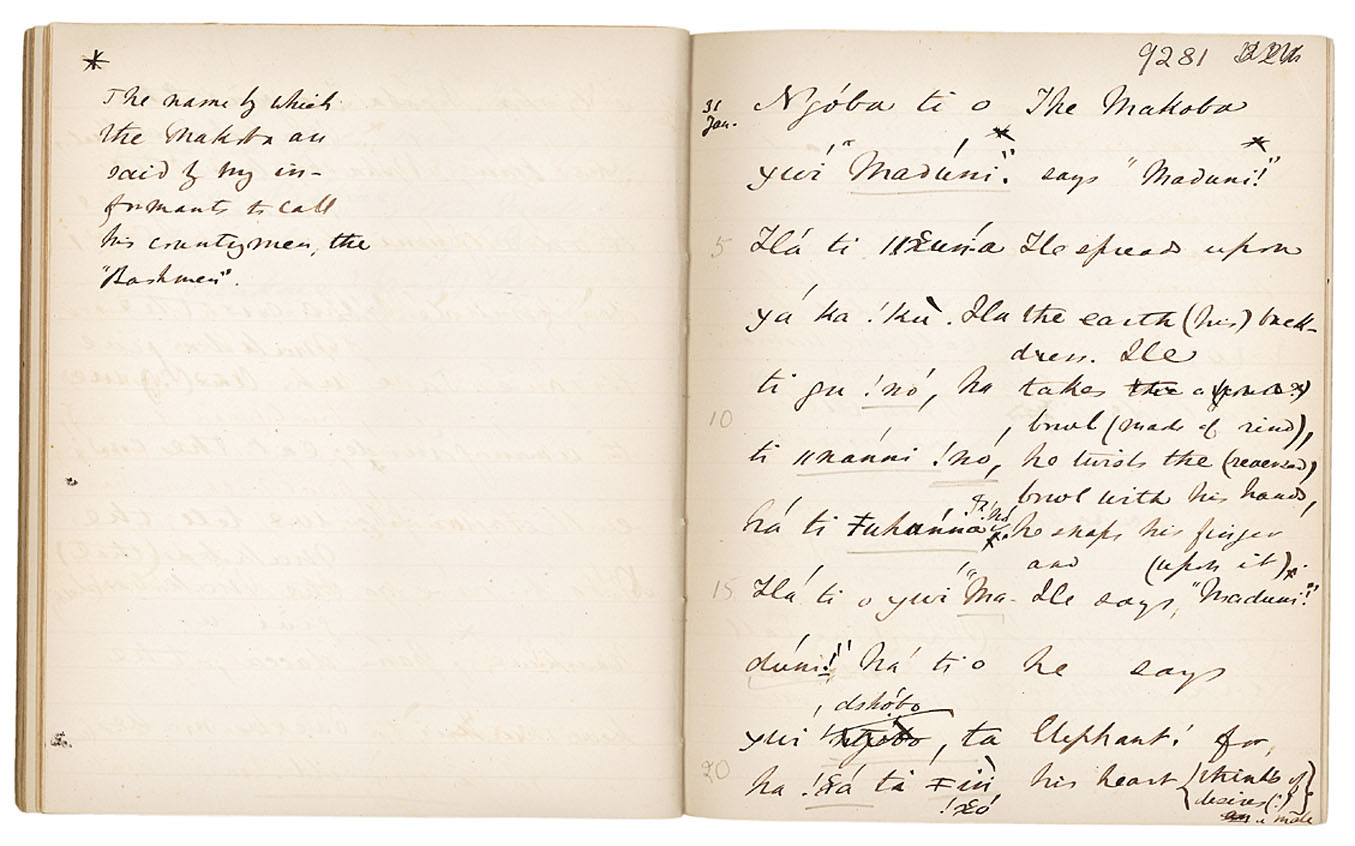 *
The name by which
the Makoba are
said by my in-
formants to call
his countrymen, the
"Bushmen".
9281
31 Jan.
Ngóba ti o The Makoba
* *
ɣwí "Madúni." says "Maduni!"
5 Há ti ǁxuń-a He spreads upon
ɣá ka !kù. Ha the earth (his) back-
dress. He
ti gu !nó, ha takes a
10 bowl (made of rind),
ti ǁnánni !nó, he twists the (reversed)
bowl with his hands,
há ti ǂuhánna he snaps his finger
and (upon it).
15 Há ti o ɣwi "Ma- He says, "Maduni!"
dúni!" há ti o he says
dshóbo
ɣwi , ta Elephant! for,
20 ha !xá ta ǂ iń his heart {thinks of
!xó desires (?)}
a male